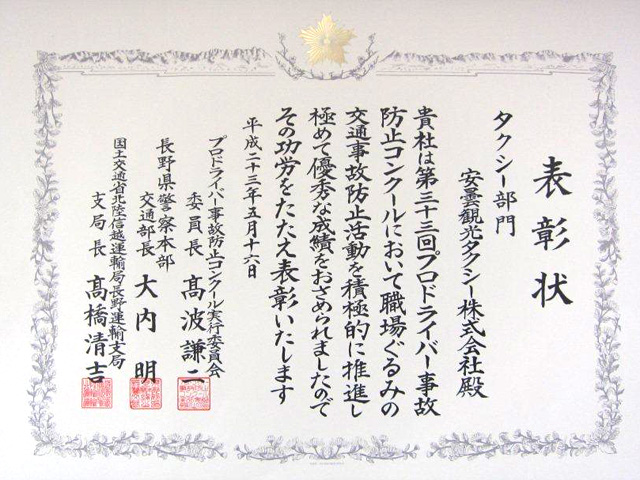 表彰状
タクシー部門
安曇観光タクシー株式会社殿
貴社は第三十三回プロドライバー事故
防止コンクールにおいて職場ぐるみの
交通事故防止活動を積極的に推進し
極めて優秀な成績をおさめられましたので
その功労をたたえ表彰いたします
平成二十三年五月十六日
プロドライバー事故防止コンクール実行委員会
委員長 髙波謙二
長野県警察本部
交通部長 大内 明
国土交通省北陸信越運輸局長野運輸支局
支局長 髙橋清吉